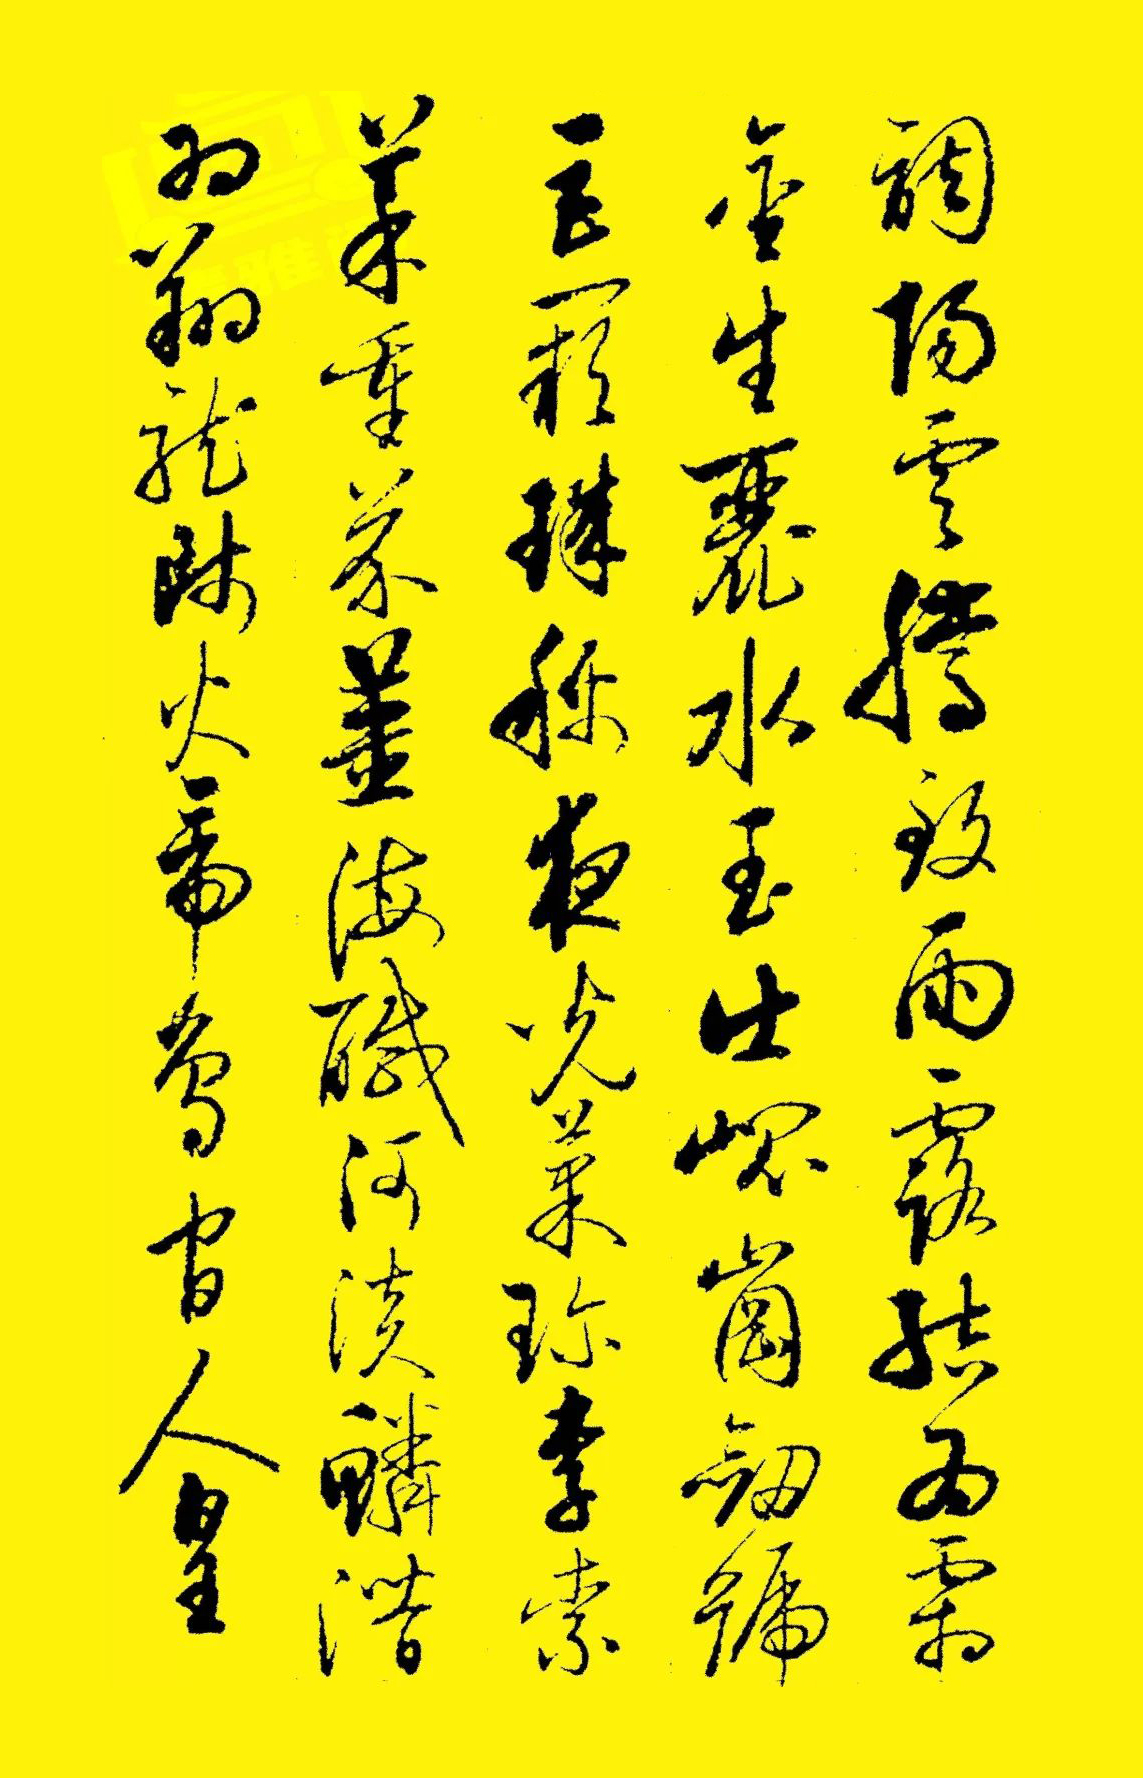 調陽雲騰致雨露結為霜
金生麗水玉出崐崗劒號
巨闕珠稱夜光菓珍李柰
菜重芥薑海醎河淡鱗潛
羽翔龍師火帝鳥官人皇